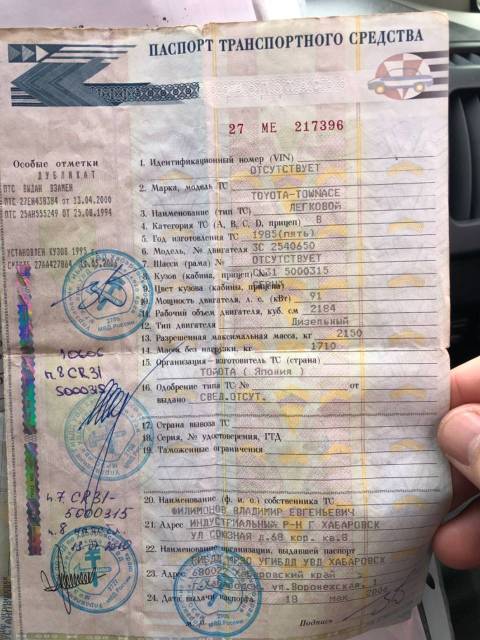 ПАСПОРТ ТРАНСПОРТНОГО СРЕДСТВА
27 МЕ 217396
Особые отметки
ДУБЛИКАТ
ПТС ВЫДАН ВЗАМЕН
ПТС 27ЕН438384 от 13.04.2000
ПТС 25АН555249 ОТ 25.08.1994
УСТАНОВЛЕН КУЗОВ 1995
1. Идентификационный номер (VIN)
ОТСУТСТВУЕТ
2. Марка, модель ТС
TOYOTA-TOWNACE
3. Наименование (тип ТС)
ЛЕГКОВОЙ
4. Категория ТС (А, В, С, D, прицеп) В
5. Год изготовления ТС 1985(пять)
6. Модель, № двигателя 3С 2540650
7. Шасси (рама) № ОТСУТСТВУЕТ
8. Кузов (кабина, прицеп) № CR31 5000315
9. Цвет кузова (кабины, прицепа)
10. Мощность двигателя, л. с. (кВт) 91
11. Рабочий объем двигателя, куб. см 2184
12. Тип двигателя Дизельный
13. Разрешенная максимальная масса, кг 2150
14. Масса без нагрузки, кг 1710
15. Организация-изготовитель ТС (страна)
ТОЙОТА ( Япония )
16. Одобрение типа ТС № от
выдано СВЕД.ОТСУТ.
17. Страна вывоза ТС
18. Серия, № удостоверения, ГТД
19. Таможенные ограничения
п.8 CR31
5000315
п.7 CR31-
5000315
20. Наименование (ф. и. о.) собственника ТС
ФИЛИМОНОВ ВЛАДИМИР ЕВГЕНЬЕВИЧ
21. Адрес ИНДУСТРИАЛЬНЫЙ Р-Н Г ХАБАРОВСК
УЛ СОЮЗНАЯ д.68 кор. кв.8
22. Наименование организации, выдавшей паспорт
МРЭО УГИБДД УВД ХАБАРОВСК
23. Адрес Хабаровский край
ул.Воронежская, 1
24. Дата выдачи паспорта 18 мая 2006
Подпись